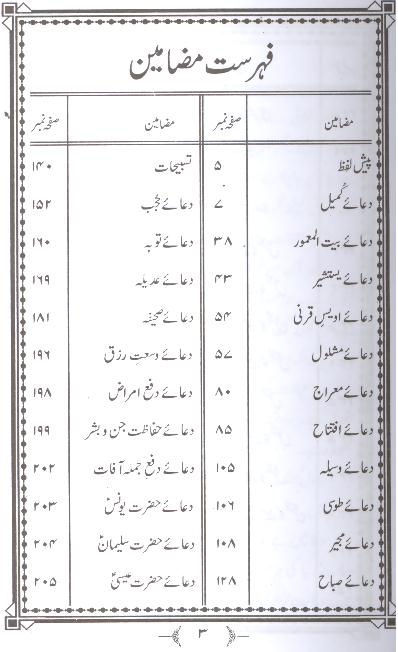 فہرست مضامین
مضامین صفحہ نمبر مضامین صفحہ نمبر
پیش لفظ ۵ تسبیحات ۱۴۰
دعائے کمیل ۷ دعائے حُجب ۱۵۲
دعائے بیت المعمور ۳۸ دعائے توبہ ۱۶۰
دعائے یستشیر ۴۳ دعائے عدیلہ ۱۶۹
دعائے اویس قرنی ۵۴ دعائے صحیفہ ۱۸۱
دعائے مشلول ۵۷ دعائے وسعتِ رزق ۱۹۶
دعائے معراج ۸۰ دعائے دفع امراض ۱۹۸
دعائے افتتاح ۸۵ دعائے حفاظت جن و بشر ۱۹۹
دعائے وسیلہ ۱۰۵ دعائے دفع جملہ آفات ۲۰۲
دعائے طوسی ۱۰۶ دعائے حضرت یونسؑ ۲۰۳
دعائے مجیر ۱۰۸ دعائے حضرت سلیمانؑ ۲۰۴
دعائے صباح ۱۲۸ دعائے حضرت عیسیٰؑ ۲۰۵
۳